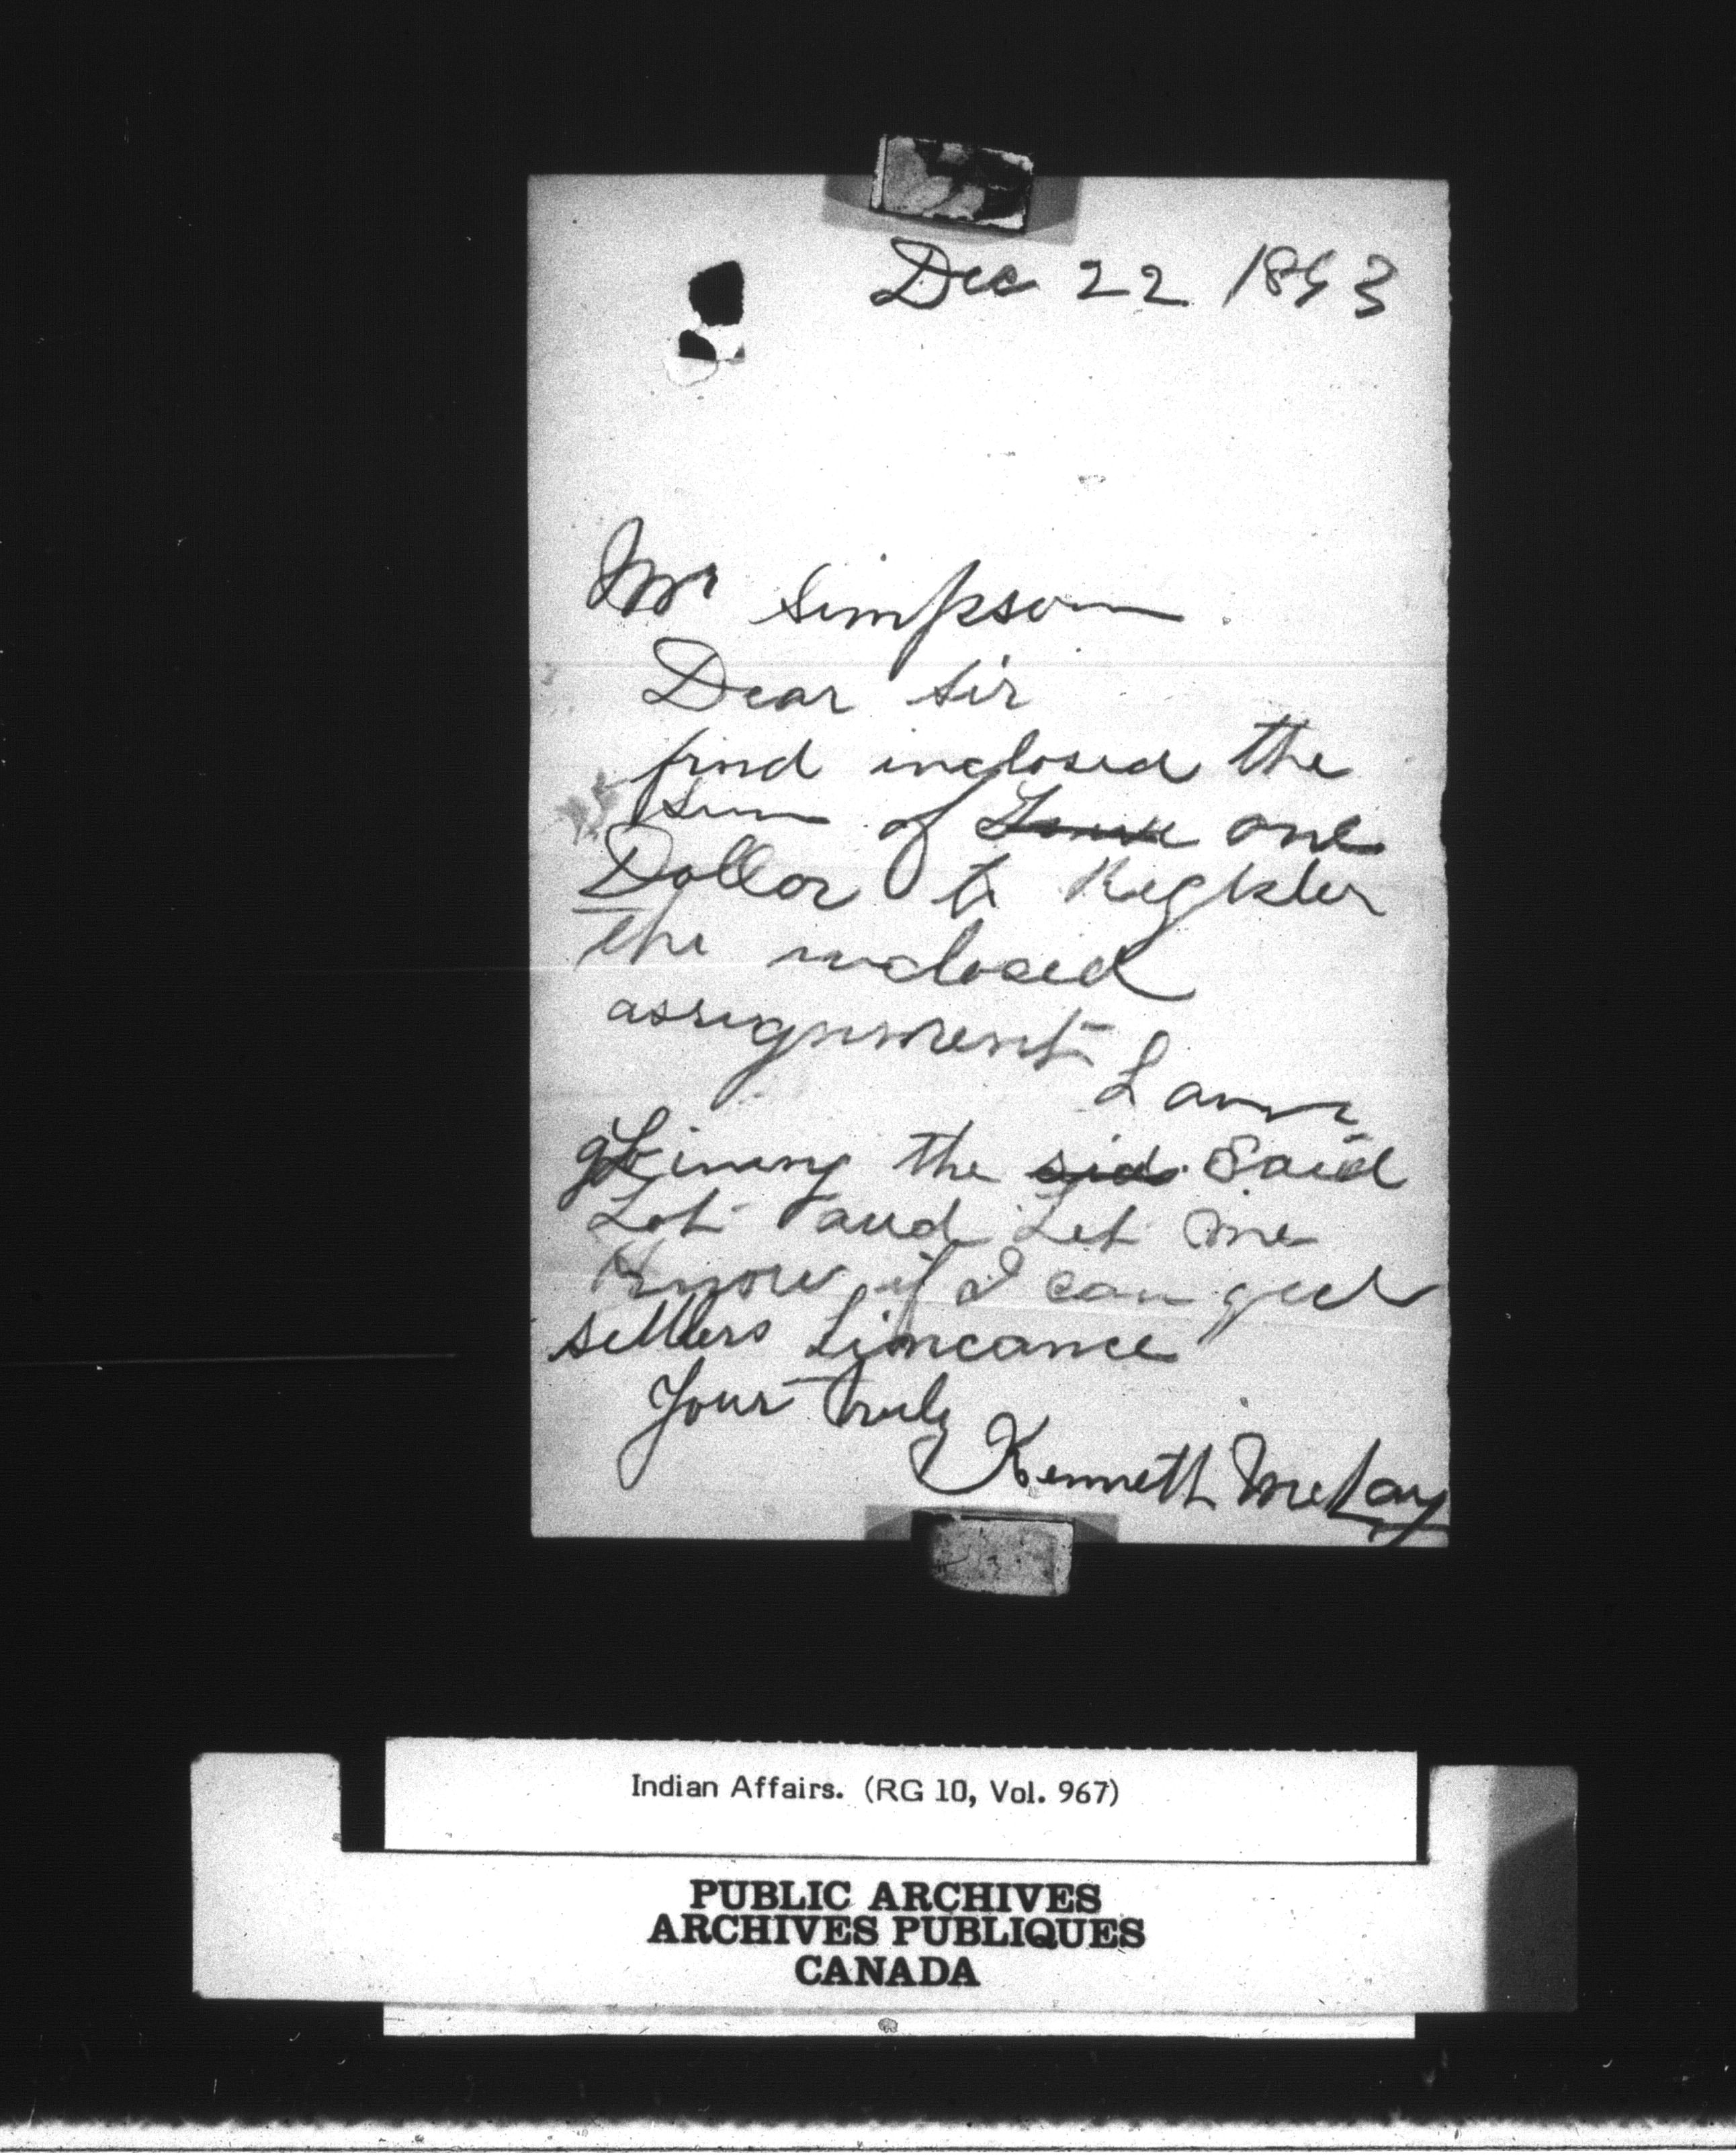 Dec 22 1893
Mr Simpson
Dear Sir
find inclosed the
sum of one
Dollar to Register
the inclosed
assignment
I am
goining the sid Said
Lot and Let me
Know if I can geet
settlers Lincance
Your Truly
Kenneth McLay
Indian Affairs. (RG 10, Vol. 967)
PUBLIC ARCHIVES
ARCHIVES PUBLIQUES
CANADA